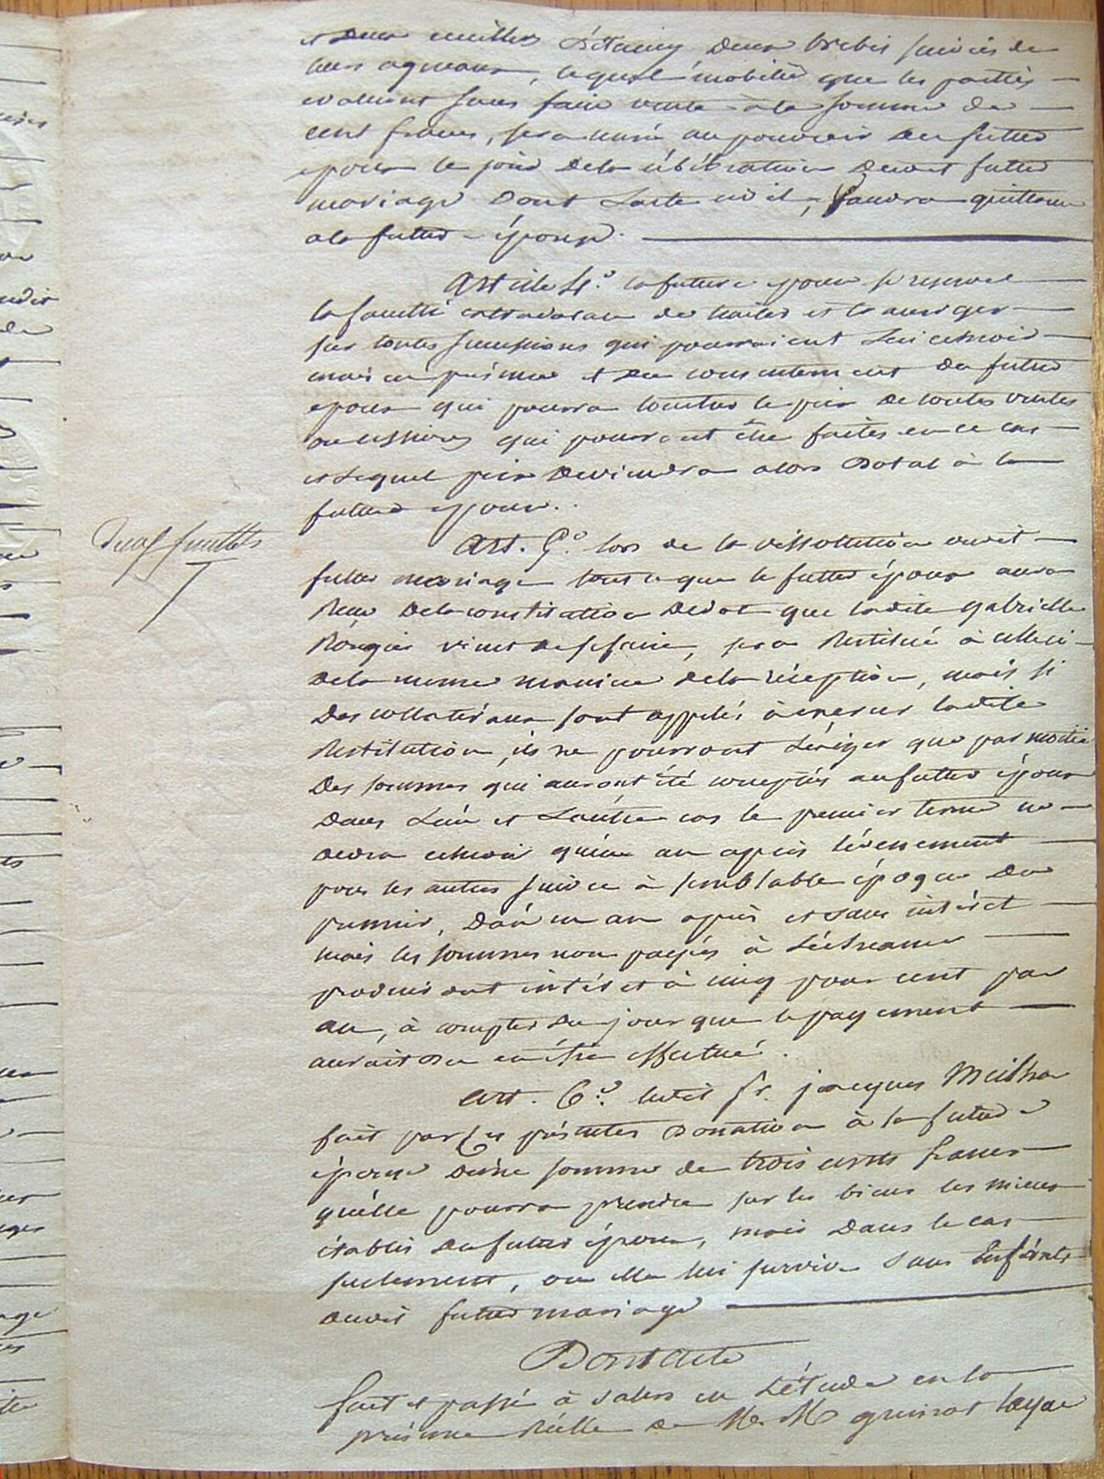 et deux cuillers d'étaing deux brebis suivies de
leurs agneaux, lequel mobilier que les parties
evaluent sans faire vente à la somme de
cent francs, sera mis au pouvoir du futur
epoux le jour de la célébration dudit futur
mariage dont l'acte civil, vaudra quittance
a la future épouse.
Article 4.e la future epouse se reserve
la faculté de traiter et transiger
sur toutes successions qui pourraient lui echoir
mais en présence et du consentement du futur
epoux qui pourra toucher le prix de toutes ventes
ou cessions qui pourront être faites en ce cas
et lequel prix deviendra alors dotal à la
future epouse.
deux feuillets
Art. 5.e lors de la dissolution dudit
futur mariage tout ce que le futur époux aura
reçu de la constitution de dot que ladite gabrielle
Rongier vient de se faire, sera restitué à celle-ci
de la meme maniere de la réception, mais si
des collatéraux sont appelés à exercer ladite
restitution, ils ne pourront l'exiger que par moitié
des sommes qui auront été comptées au futur époux
dans l'un et l'autre cas le premier terme ne
devra echoir qu'un an après l'évenement
pour les autres suivre à semblable époque du
premier, d'an en an après et sans intéret
mais les sommes non payées à l'écheance
produiront intéret à cinq pour cent par
an, à compter du jour que le payement
aurait du en être effectué.
Art. 6.e ledit Sr. jacques
fait par ces présentes donation à la future
épouse d'une somme de trois cents francs
qu'elle pourra prendre sur les biens les mieux
établis du futur époux, mais dans le cas
seulement, ou elle lui survive sans Enfants
dudit futur mariage
Dont acte
fait et passé à salers en l'étude en la
présence réelle de M. M